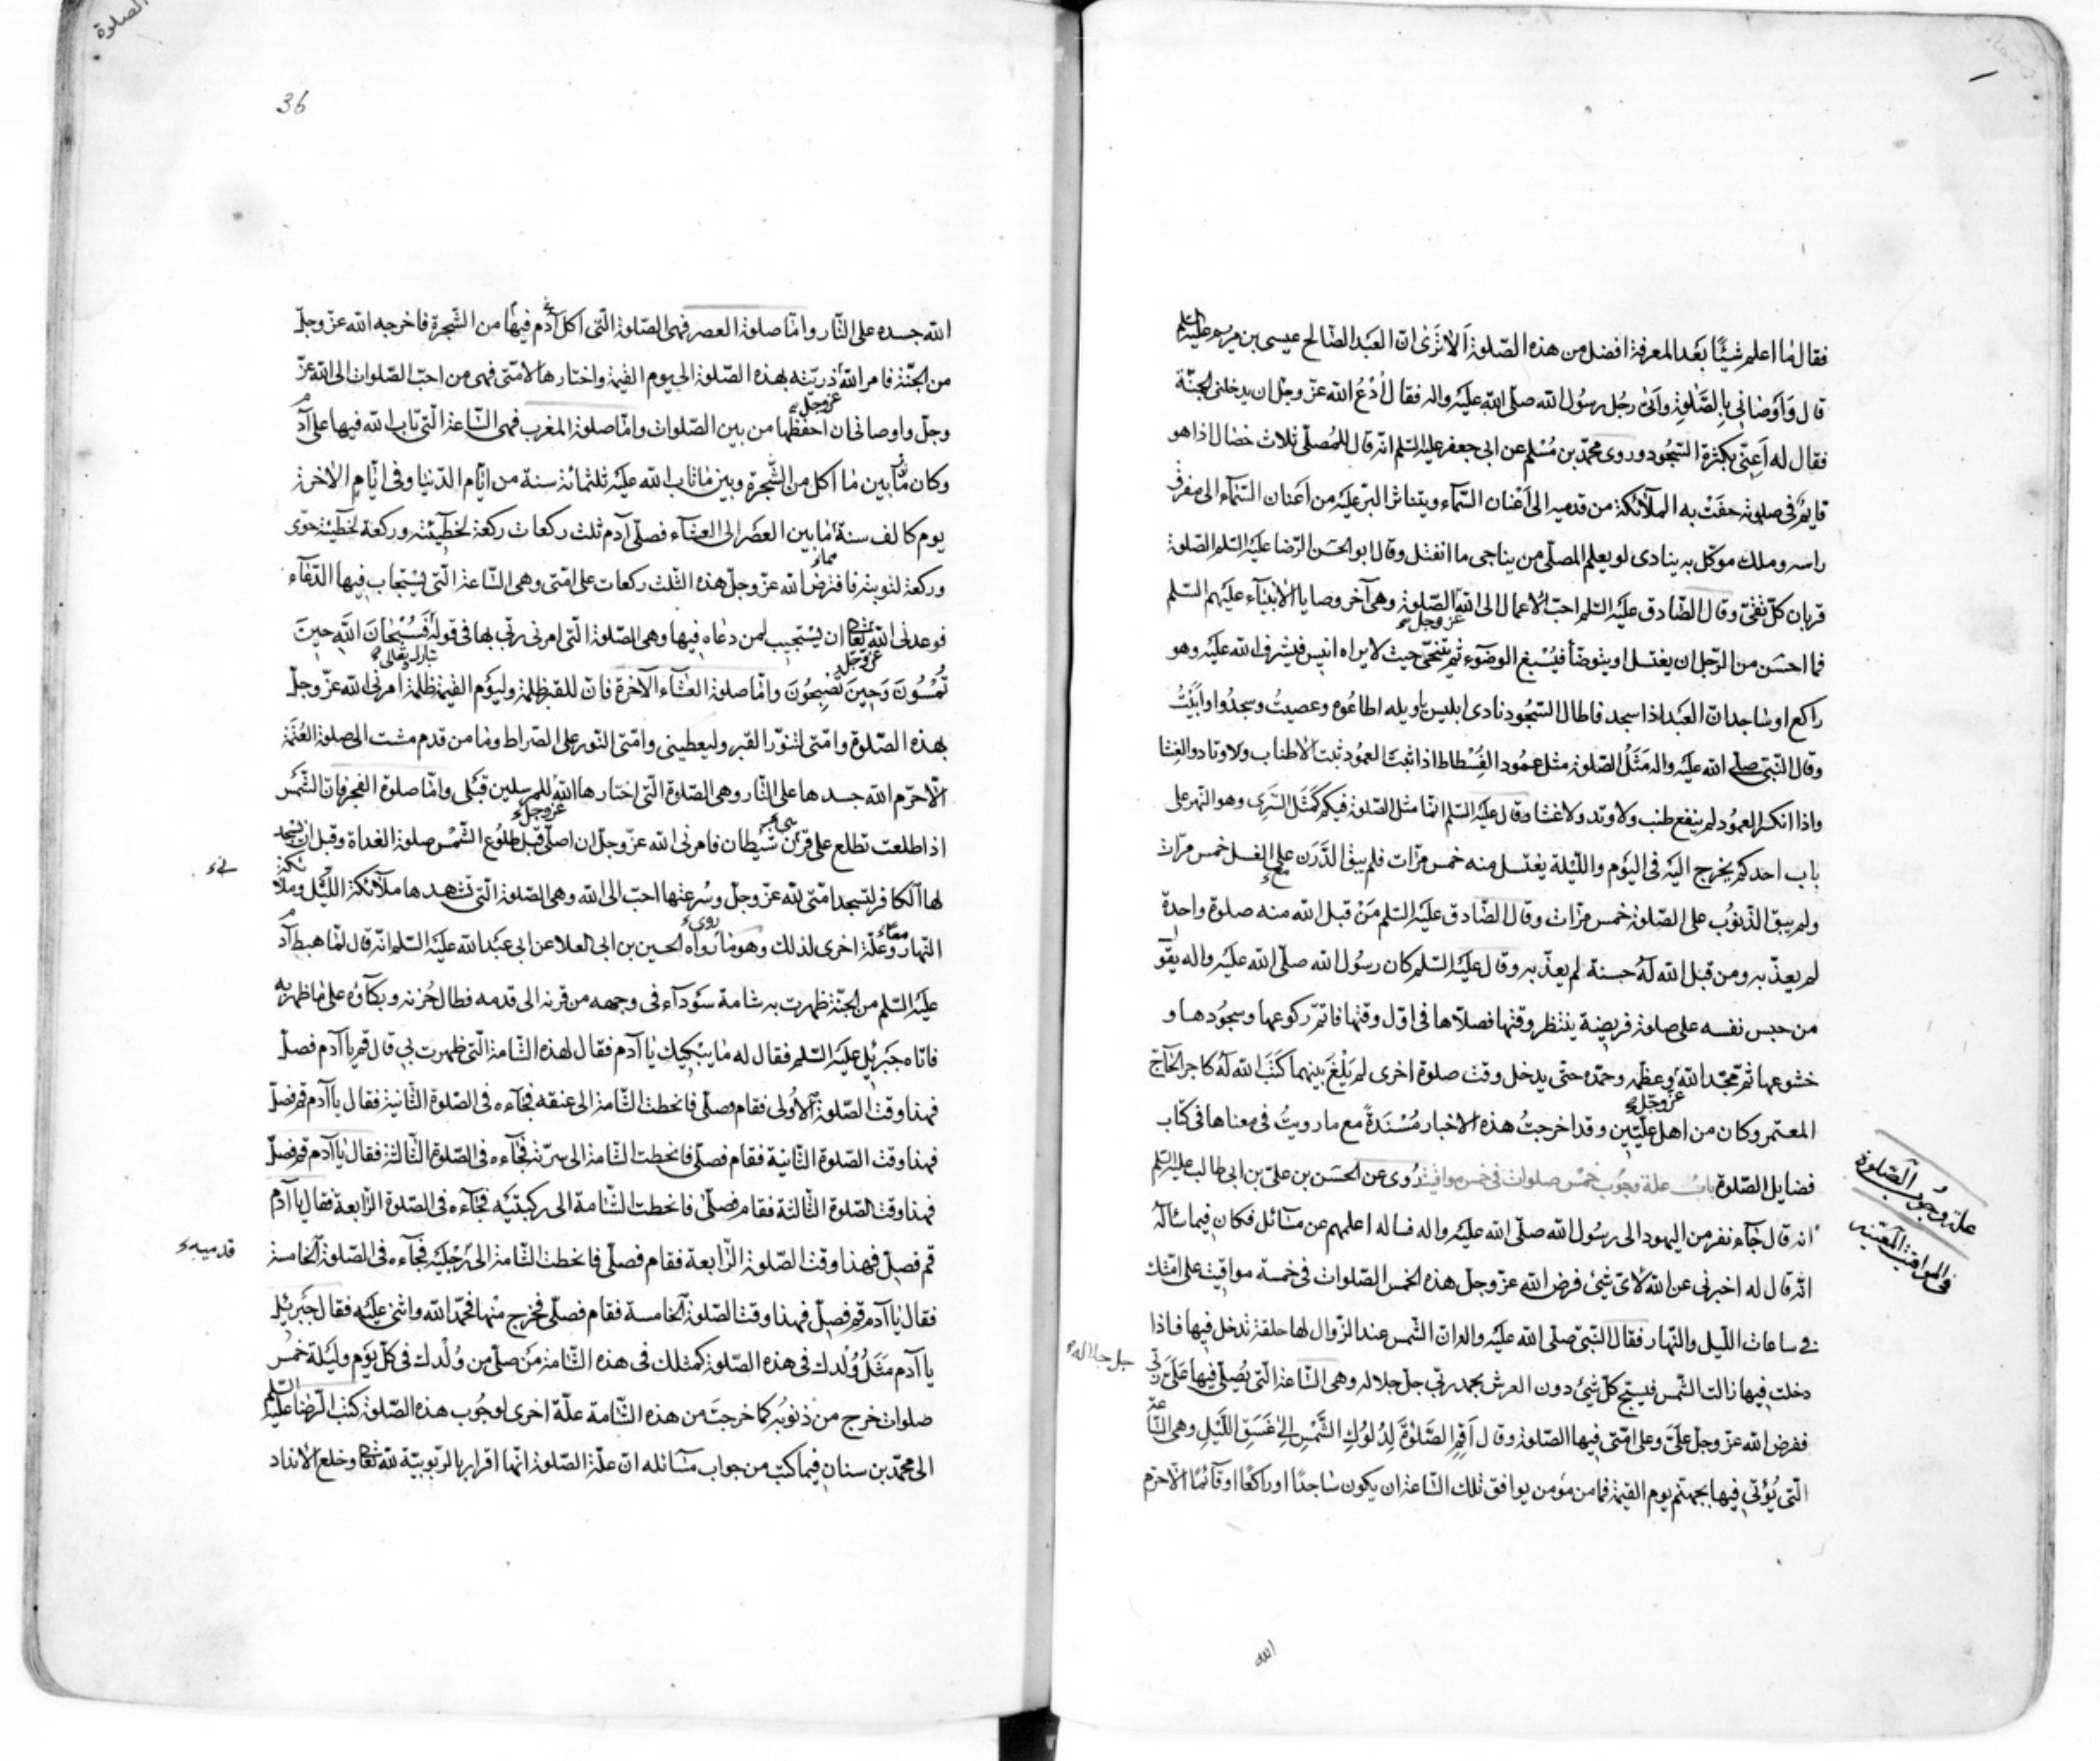 فقال ما اعلم شيئًا بَعْد المعرفة افضل من هذه الصّلوة اَلا تَرٰى انّ العَبد الصّالح عيسى بن مريم عليه السلم
قال وَاَوْصَاني بِالصَّلٰوةِ واَتىٰ رجُل رسُول الله صلّى الله عليْه واله فقال اُدْعُ الله عزّ وجلّ ان يدخلنى الجنّة
فقال له اَعِنّى بكثرة السّجُود وروى محمّد بن مُسْلم عن ابى جعفر عليه السّلم انّه قال للمُصلّى ثلاث خصال اذا هو
قايمٌ فى صلوته حفّتْ به الملآئكة من قدميه الى اَعْنان السّمآء ويتناثر البرّ عليْه من اَعنان السّمآء الى مفرق
راسه وملك موكّل به ينادى لو يعلم المصلّى من يناجى ما انفتل وقال ابو الحسَن الرّضا عليْه السّلم الصّلوة
قربان كلّ تقىّ وقال الصّادق عليْه السّلم احبّ الاعمال الى الله عزّ وجلّ الصّلوة وهى آخر وصايا الانبيآء عليْهم السّلم
فما احسَن من الرّجل ان يغتسل او يتوضّأ فيُسْبغ الوضوٓء ثم يتنحّى حيث لا يراه انيس فيشرف الله عليْه وهو
راكع او ساجد انّ العَبْد اذا سجد فاطال السّجُود نادى ابليس يا ويله اطاعُوه وعصيتُ وسجدُوا وابَيْتُ
وقال النّبىّ صلّى الله عليْه واله مَثَلُ الصّلوة مثل عمُود الفُسْطاط اذا ثبت العمُود ثبت الاطناب والاوتاد والغشا
واذا انكسر العمُود لم ينفع طنب ولا وتد ولا غشا وقال عليْه السّلم انّما مثل الصّلوة فيكم كَمَثَل السّرِى وهو النّهر على
باب احدكم يخرج اليْه فى اليَوْم واللّيْلة يغتسل منه خمس مرّات فلم يبق الدَّرَن على الغسل خمس مرّات
ولم يبق الذّنُوب على الصّلوة خمس مرّات وقال الصّادق عليْه السّلم مَنْ قبل الله منه صلوة واحدة
لم يعذّبه ومن قبل الله لهُ حسنة لم يعذّبه وقال عليْه السّلم كان رسُول الله صلّى الله عليْه واله يقول
من حبس نفسه على صلوة فريضة ينتظر وقتها فصلّاها فى اوّل وقتها فاتمّ ركوعها وسجُودها و
خشوعها ثم مجّد الله عزّ وجلّ وعظّمه وحمّده حتّى يدخل وقت صلوة اخرى لم يَلْغَ بينهما كتبَ الله لهُ كاجر الحآجّ
المعتمر وكان من اهل علّيّين وقد اخرجتُ هذه الاخبار مُسْنَدَةً مع ما رويتُ فى معناها فى كتاب
فضايل الصّلوة بابُ علة وجُوب خمْس صلوات فى خمس مواقيت رُوى عن الحسَن بن علىّ بن ابى طالب عليه السّلم
انّه قال جآء نفر من اليهود الى رسُول الله صلّى الله عليْه واله فساله اعلمهم عن مسآئل فكان فيما سألهُ
انّه قال له اخبرنى عن الله لاىّ شئ فرض الله عزّ وجلّ هذه الخمس الصّلوات فى خمسة مواقيت على امّتك
فى ساعات اللّيل والنّهار فقال النّبىّ صلّى الله عليْه واله انّ الشّمس عند الزّوال لها حلقة تدخل فيها فاذا
دخلت فيها زالت الشّمس فيسبّح كلّ شئ دون العرش بحمد ربّى جلّ جلاله وهى السّاعة الّتى يُصلّى فيها عَلَىَّ ربّى
ففرض الله عزّ وجلّ علىَّ وعلى امّتى فيها الصّلوة وقال اَقِمِ الصَّلوٰةَ لِدُلُوكِ الشَّمْسِ اِلىٰ غَسَقِ اللَّيْلِ وهى السّاعة
الّتى يُؤتى فيها بجهنّم يوم القيمة فما من مؤمن يوافق تلك السّاعة ان يكون ساجدًا او راكعًا او قآئمًا الّا حرّم
علة وجُوب الصّلوة
فى المواقيت المعيّنه
جل جلاله
الله
الصلوة
36
الله جسده على النّار وامّا صلوة العصر فهى الصّلوة الّتى اكل آدم فيها من الشّجرة فاخرجه الله عزّ وجلّ
من الجنّة فامر الله ذريّته بهذه الصّلوة الى يوم القيمة واختارها لامّتى فهى من احبّ الصّلوات الى الله عزّ
وجلّ واوصانى ان احفظها من بين الصّلوات وامّا صلوة المغرب فهى السّاعة الّتى تاب الله عزّ وجلّ فيها على آدم
وكان مابين ما اكل من الشّجرة وبين ما تاب الله عليْه ثلثمائة سنة من ايّام الدّنيا وفى ايّام الاخرة
يوم كالف سنة ما بين العصْر الى العشآء فصلّى آدم ثلث ركعات ركعة لخطيئته وركعة لخطيئة حوّى
وركعة لتوبته فافترض الله عزّ وجلّ هذه الثّلث ركعات على امّتى وهى السّاعة الّتى يسْتجاب فيها الدّعآء
فوعدنى الله تعالى ان يسْتجيب لمن دعاه فيها وهى الصّلوة الّتى امرنى ربّى بها فى قوله فَسُبْحانَ اللّهِ حِينَ
تُمْسُونَ وَحِينَ تُصْبِحُونَ وامّا صلوة العشآء الآخرة فانّ للقبر ظلمة وليَوْم القيمة ظلمة امرنى الله عزّ وجلّ
بهذه الصّلوة وامّتى لتنوّر القبر وليعطينى وامّتى النّور على الصّراط وما من قدم مشت الى صلوة العَتَمَة
الّا حرّم الله جسدها على النّار وهى الصّلوة الّتى اختارها الله للمرسلين قَبْلى وامّا صلوة الفجر فانّ الشّمس
اذا طلعت تطلع على قرْن شَيْطان فامرنى الله عزّ وجلّ ان اصلّى قبل طلُوع الشّمْس صلوة الغداة وقبل ان يسْجد
لها الكافر لتسجد امّتى لله عزّ وجلّ وسُرعتها احبّ الى الله وهى الصّلوة الّتى تشهدها ملآئكة اللّيْل وملائكة
النّهار وعلّة اخرى لذلك وهو ما رواه الحسين بن ابى العلا عن ابى عبْد الله عليْه السّلم انّه قال لمّا هبط آدم
عليْه السّلم من الجنّة ظهرت به شامة سَوْدآء فى وجهه من قرنه الى قدمه فطال حُزنه وبكآؤه على ما ظهر به
فاتاه جبْرئيل عليْه السّلم فقال له ما يبْكيك يا آدم فقال لهذه الشّامة الّتى ظهرت بى قال قم يا آدم فصلّ
فهذا وقت الصّلوة الاُولى فقام وصلّى فانحطت الشّامة الى عنقه فجآءه فى الصّلوة الثّانية فقال يا آدم قم فصلّ
فهذا وقت الصّلوة الثّانية فقام فصلّى فانحطت الشّامة الى سرّته فجآءه فى الصّلوة الثّالثة فقال يا آدم قم فصلّ
فهذا وقت الصّلوة الثّالثة فقام فصلّى فانحطت الشّامة الى ركبتيْه فجآءه فى الصّلوة الرّابعة فقال يا آدم
قم فصلّ فهذا وقت الصّلوة الرّابعة فقام فصلّى فانحطت الشّامة الى رِجْليْه فجآءه فى الصّلوة الخامسة
فقال يا آدم قم فصلّ فهذا وقت الصّلوة الخامسة فقام فصلّى فخرج منها فحمد الله واثنى عليْه فقال جبْرئيل
يا آدم مَثَلُ وُلْدك فى هذه الصّلوة كمثلك فى هذه الشّامة مَن صلّى من وُلْدك فى كلّ يَوْم وليْلة خمْس
صلوات خرج من ذنوبه كما خرجتَ من هذه الشّامة علّة اخرى لوجُوب هذه الصّلوة كتب الرّضا عليه السّلم
الى محمّد بن سنان فيما كتب من جواب مسآئله انّ علّة الصّلوة انّها اقرار بالرّبوبيّة لله تعالى وخلع الانداد
قدميه